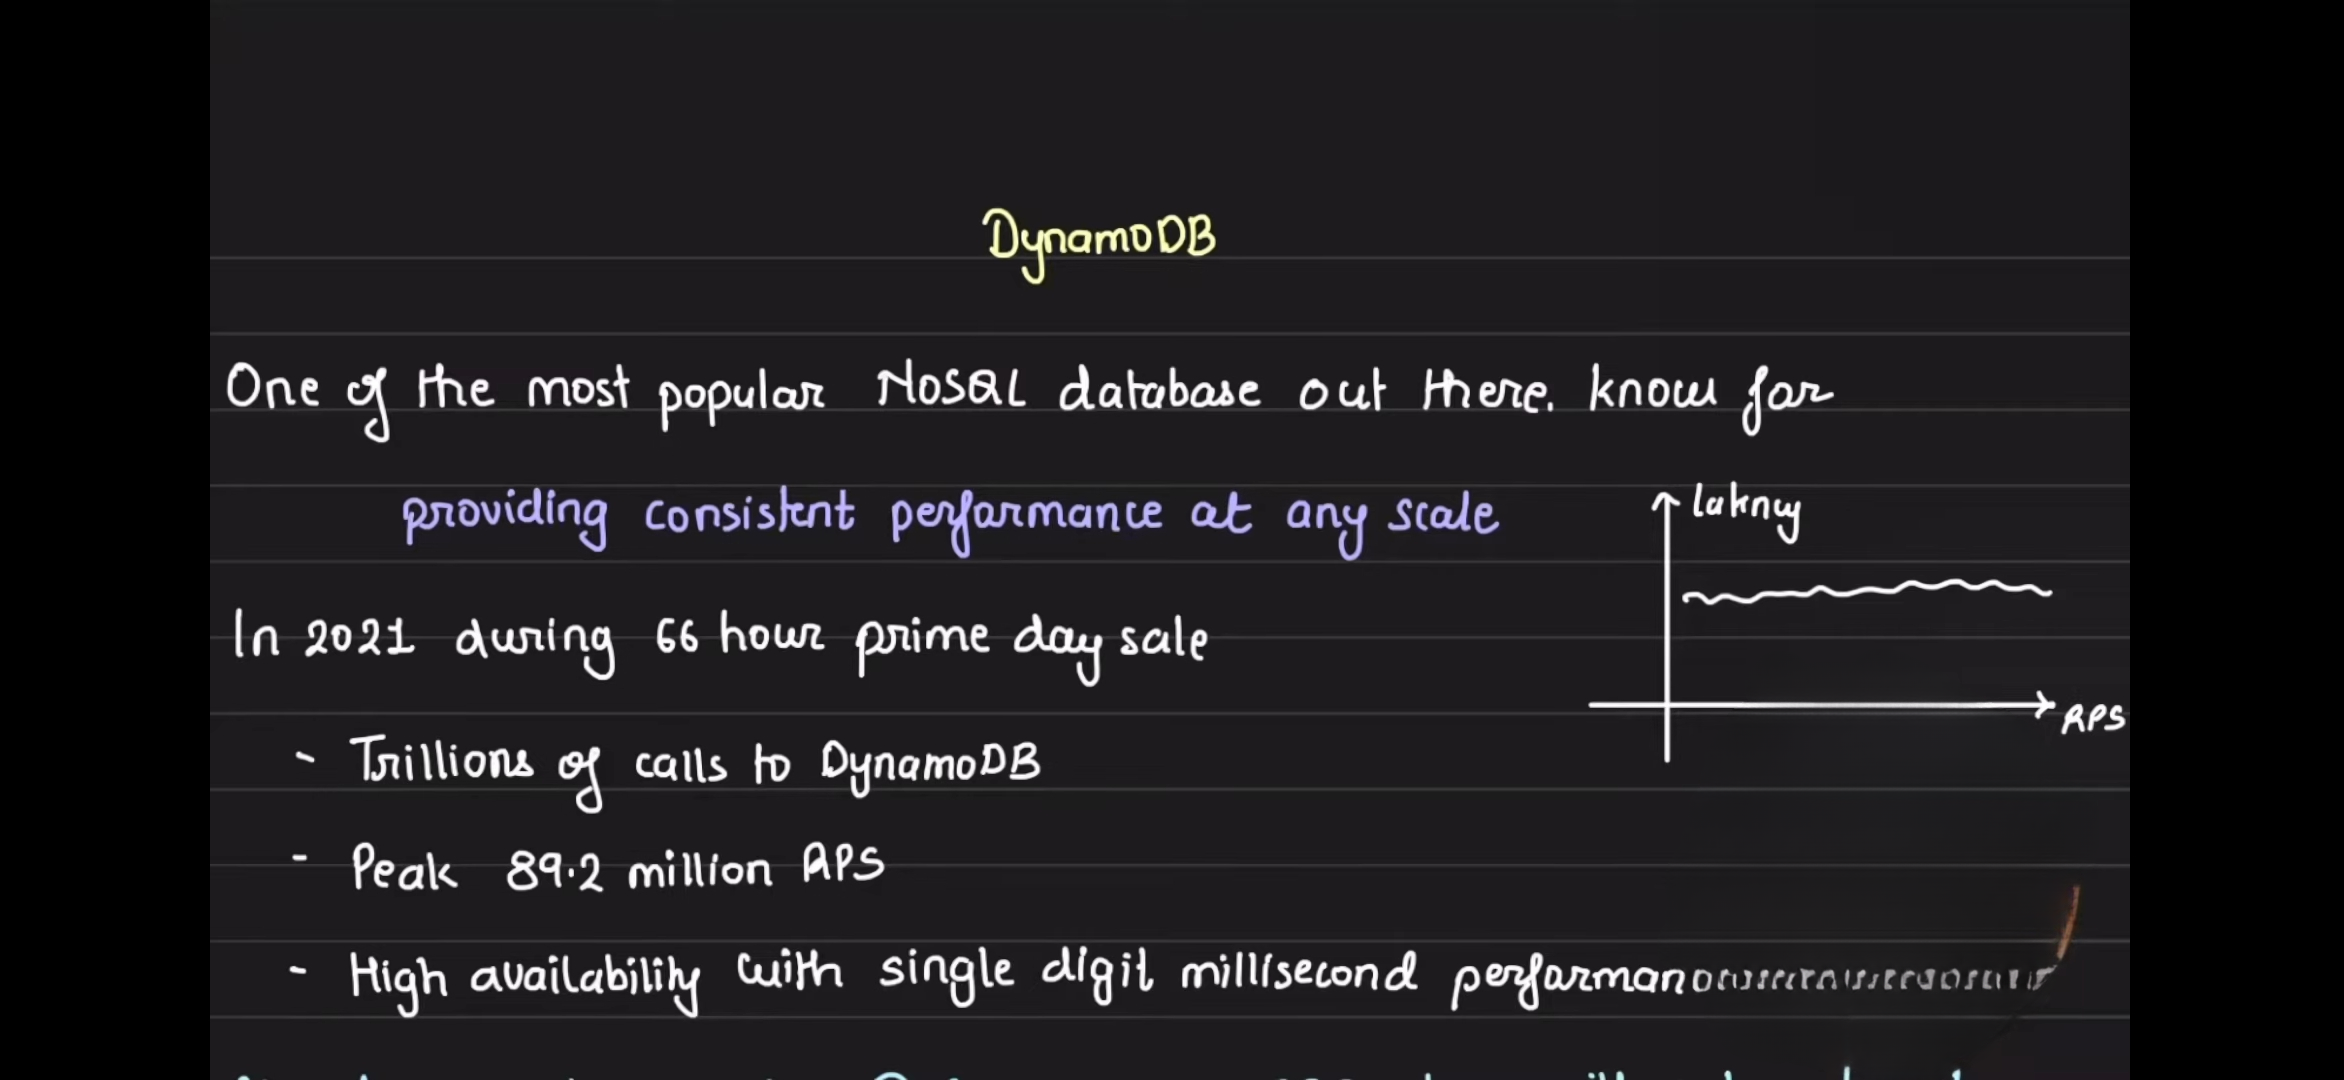 DynamoDB
One of the most popular NoSQL database out there. know for
providing consistent performance at any scale
latency
In 2021 during 66 hour prime day sale
RPS
- Trillions of calls to DynamoDB
- Peak 89.2 million RPS
- High availability with single digit millisecond